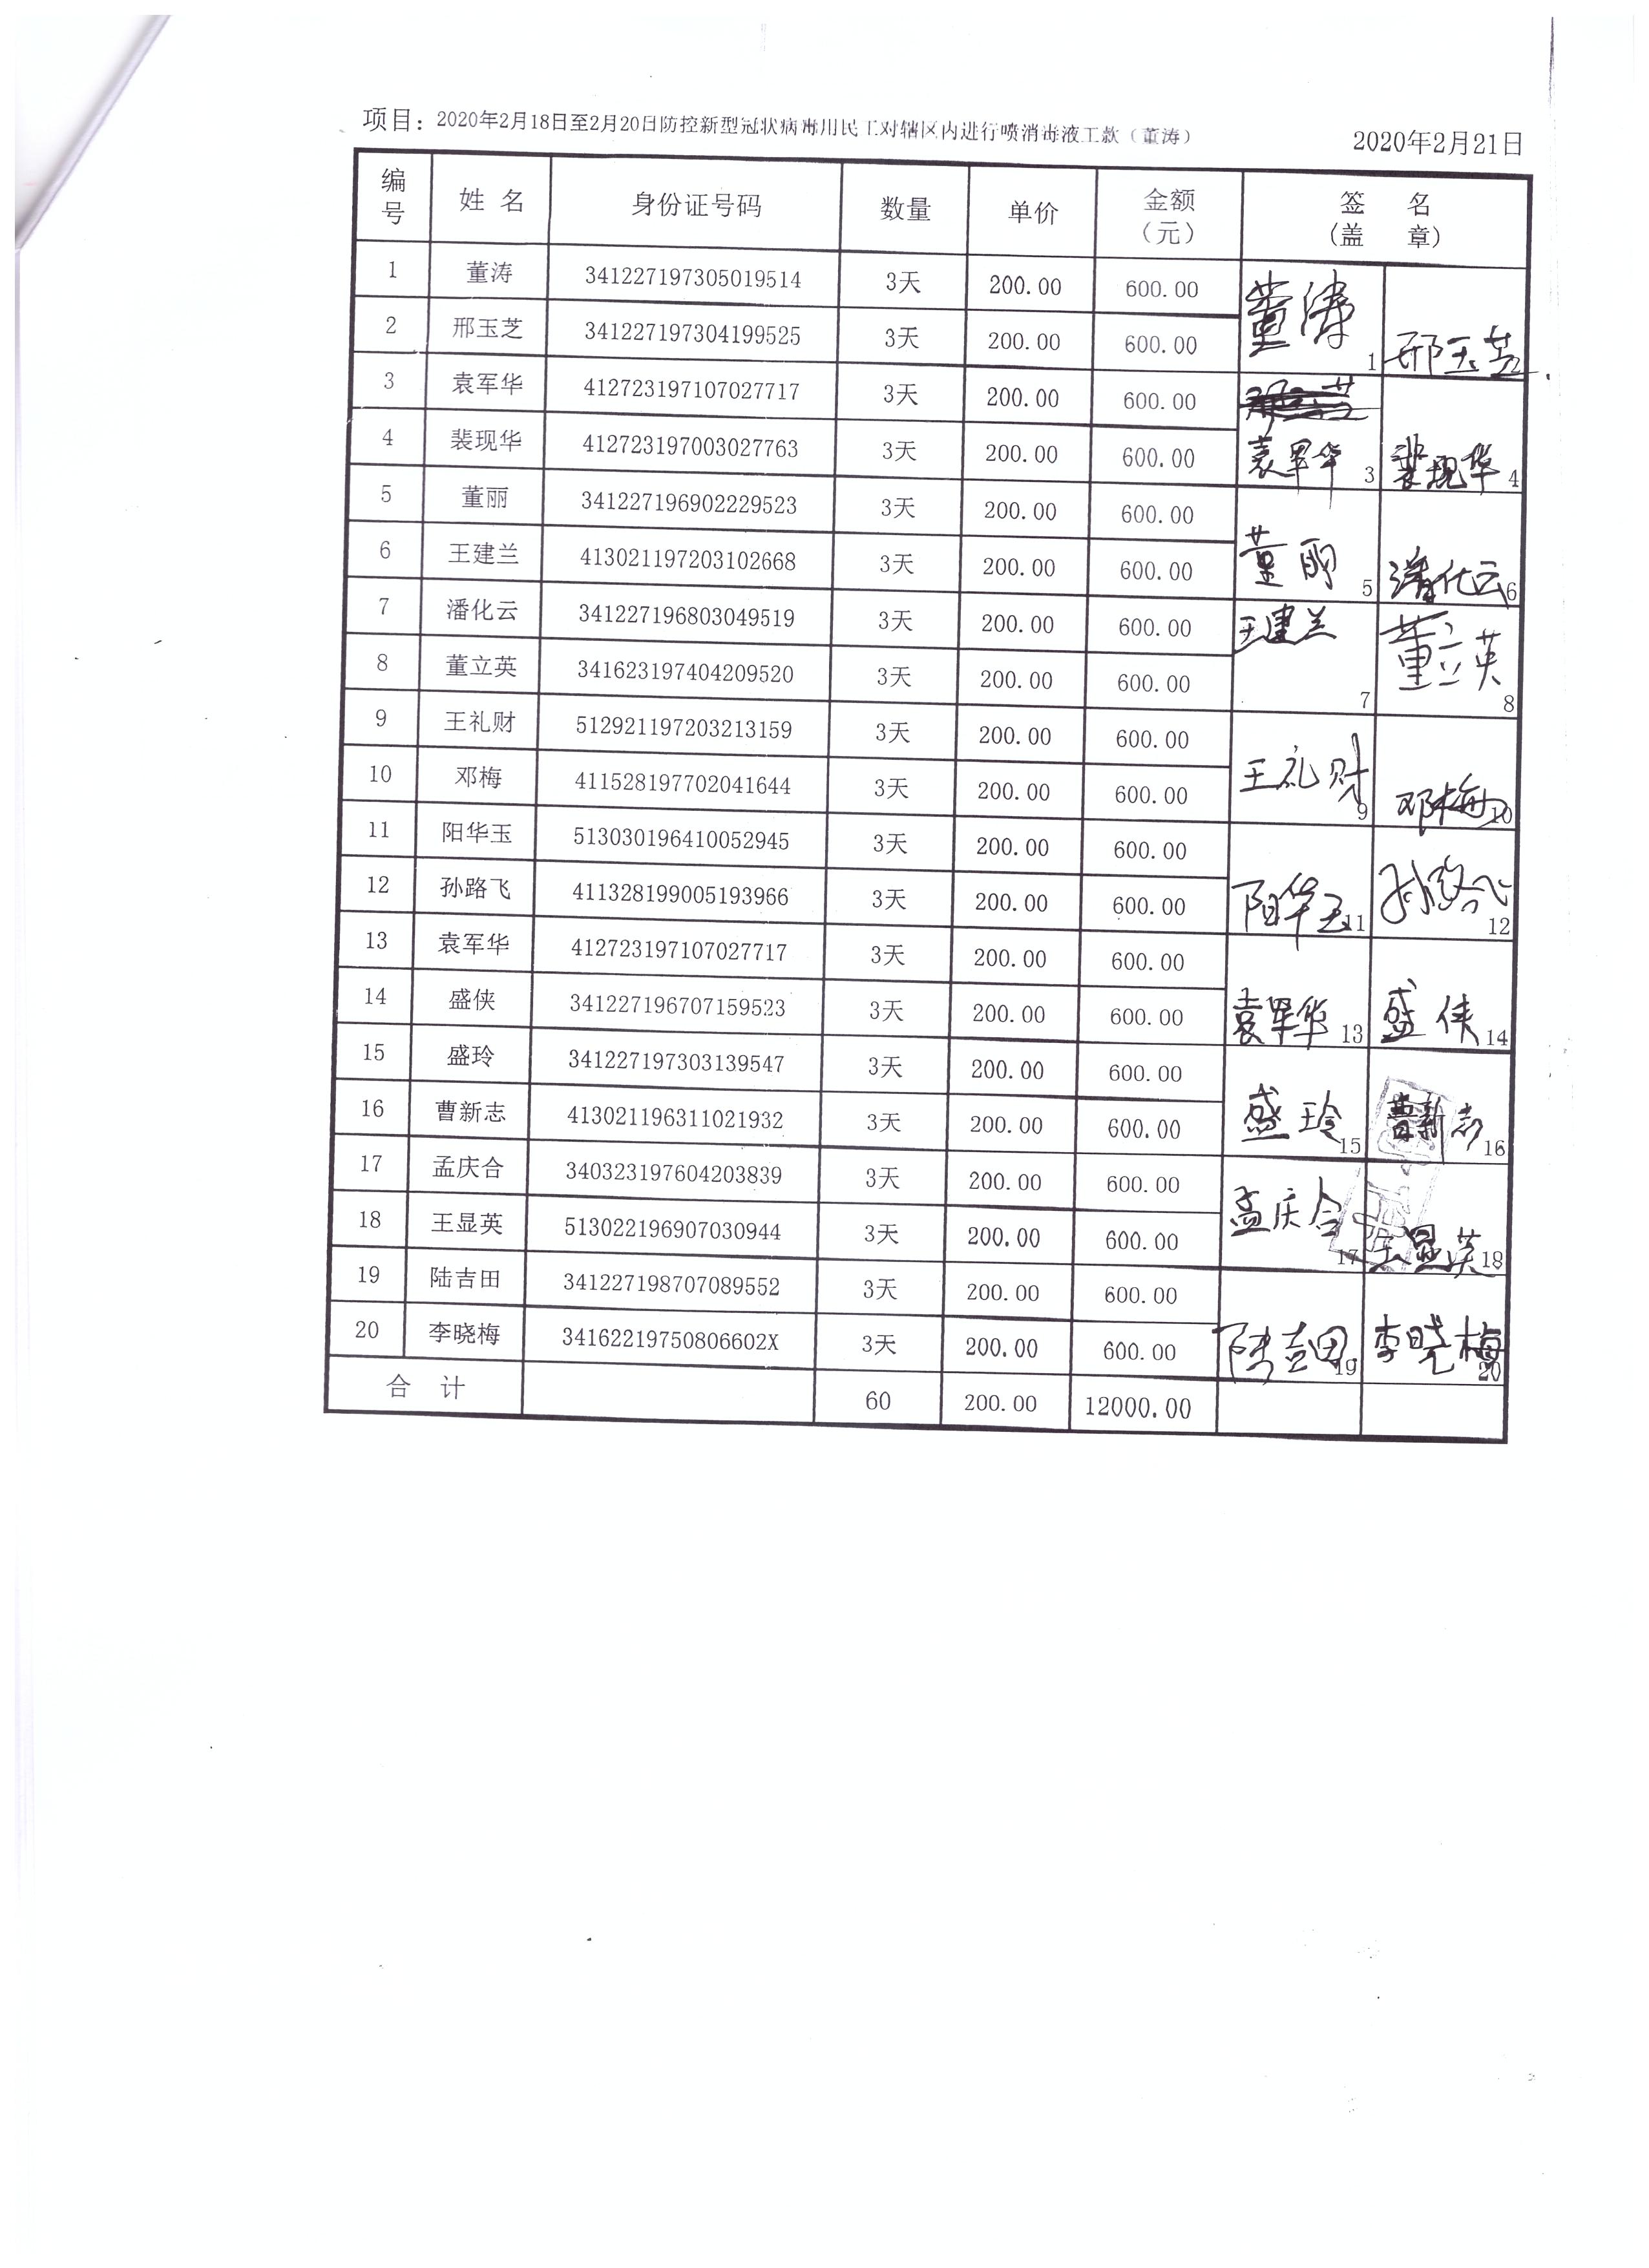 项目：2020年2月18日至2月20日防控新型冠状病毒用民工对辖区内进行喷消毒液工款（董涛） 2020年2月21日
编号 姓 名 身份证号码 数量 单价 金额（元） 签 名（盖 章）
1 董涛 341227197305019514 3天 200.00 600.00
2 邢玉芝 341227197304199525 3天 200.00 600.00
董涛 1 邢玉芝
3 袁军华 412723197107027717 3天 200.00 600.00
4 裴现华 412723197003027763 3天 200.00 600.00
袁军华 3 裴现华 4
5 董丽 341227196902229523 3天 200.00 600.00
6 王建兰 413021197203102668 3天 200.00 600.00
董丽 5 潘化云 6
7 潘化云 341227196803049519 3天 200.00 600.00
8 董立英 341623197404209520 3天 200.00 600.00
王建兰 7 董立英 8
9 王礼财 512921197203213159 3天 200.00 600.00
10 邓梅 411528197702041644 3天 200.00 600.00
王礼财 9 邓梅 10
11 阳华玉 513030196410052945 3天 200.00 600.00
12 孙路飞 411328199005193966 3天 200.00 600.00
阳华玉 11 孙路飞 12
13 袁军华 412723197107027717 3天 200.00 600.00
14 盛侠 341227196707159523 3天 200.00 600.00
袁军华 13 盛侠 14
15 盛玲 341227197303139547 3天 200.00 600.00
16 曹新志 413021196311021932 3天 200.00 600.00
盛玲 15 曹新志 16
17 孟庆合 340323197604203839 3天 200.00 600.00
18 王显英 513022196907030944 3天 200.00 600.00
孟庆合 17 王显英 18
19 陆吉田 341227198707089552 3天 200.00 600.00
20 李晓梅 34162219750806602X 3天 200.00 600.00
陆吉田 19 李晓梅 20
合 计 60 200.00 12000.00